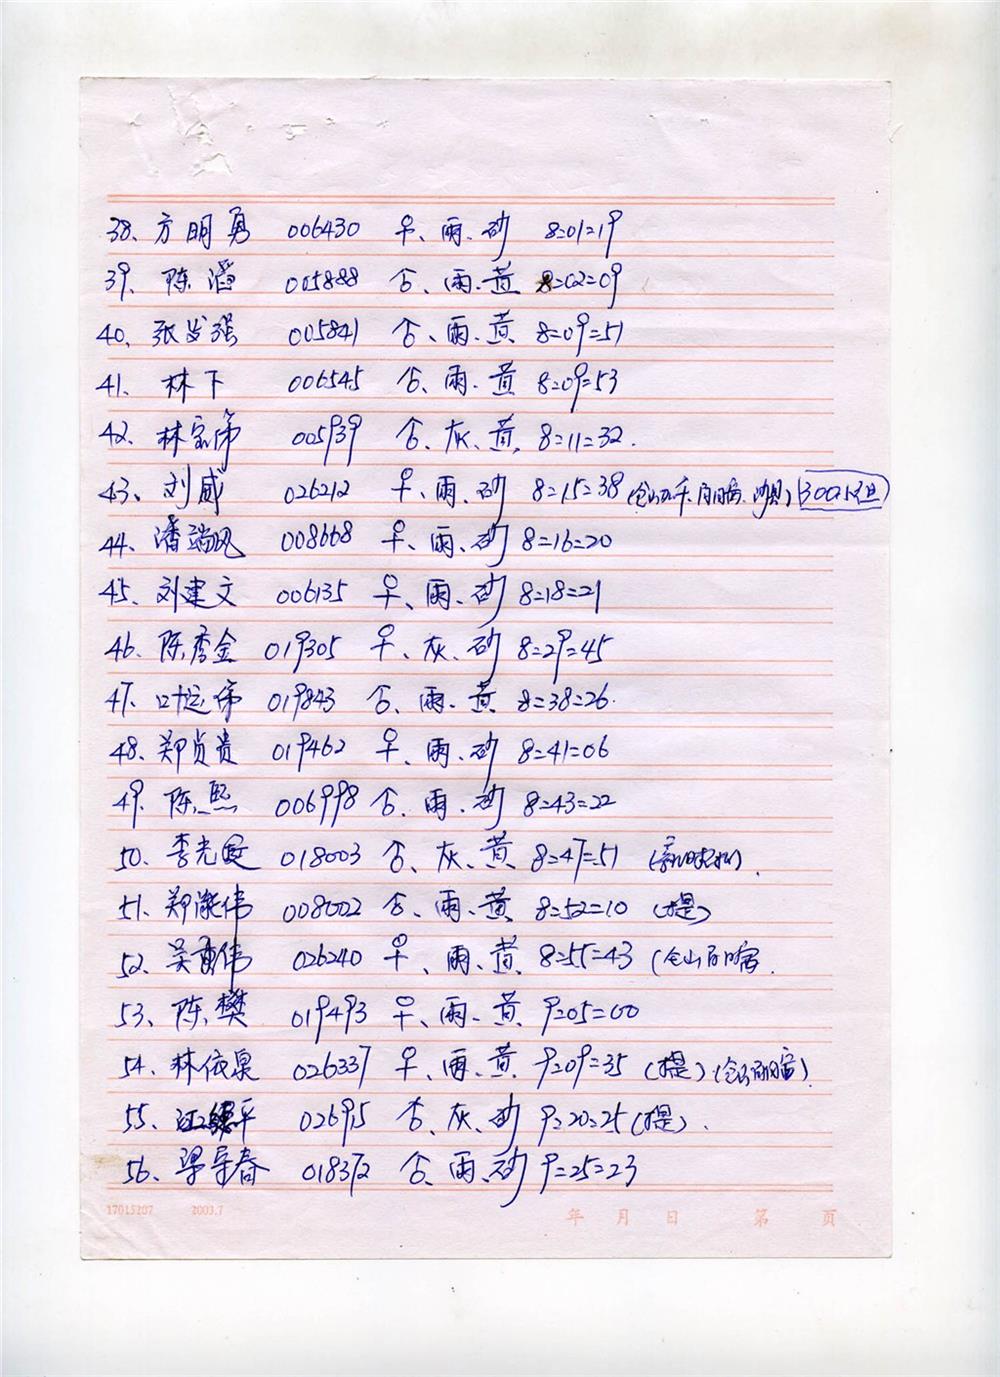 38、方明勇 006430 ♀、雨、砂 8=01=19
39、陈滔 005888 合、雨、黄 8=02=09
40、张发强 005841 合、雨、黄 8=09=51
41、林下 006545 合、雨、黄 8=09=53
42、林宗伟 005939 合、灰、黄 8=11=32.
43、刘威 026212 ♀、雨、砂 8=15=38
44、潘瑞凤 008668 ♀、雨、砂 8=16=20
45、刘建文 006135 ♀、雨、砂 8=18=21
46、陈秀金 019305 ♀、灰、砂 8=29=45
47、叶运伟 019843 合、雨、黄 8=38=26.
48、郑贞贵 019462 ♀、雨、砂 8=41=06
49、陈熙 006998 合、雨、砂 8=43=22
50、李光 018003 合、灰、黄 8=47=51
51、郑 伟 008002 合、雨、黄 8=52=10 (提)
52、吴 伟 026240 ♀、雨、黄 8=55=43 (仓山
53、陈樊 019493 ♀、雨、黄 9=05=00
54、林依泉 026337 ♀、雨、黄 9=09=35 (提)
55、江 平 02695 合、灰、砂 9=20=25 (提).
56、梁 春 018372 合、雨、砂 9=25=23
17015207 2003.7 年 月 日 第 页